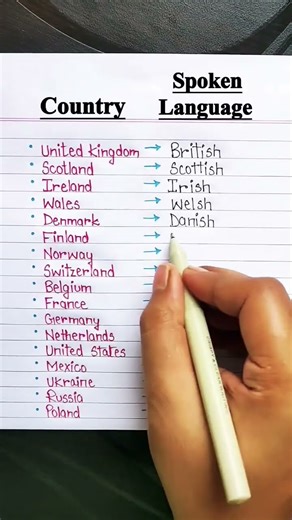 Country
Spoken Language
United Kingdom → British
Scotland → Scottish
Ireland → Irish
Wales → Welsh
Denmark → Danish
Finland →
Norway →
Switzerland
Belgium
France
Germany
Netherlands
United States
Mexico
Ukraine
Russia
Poland